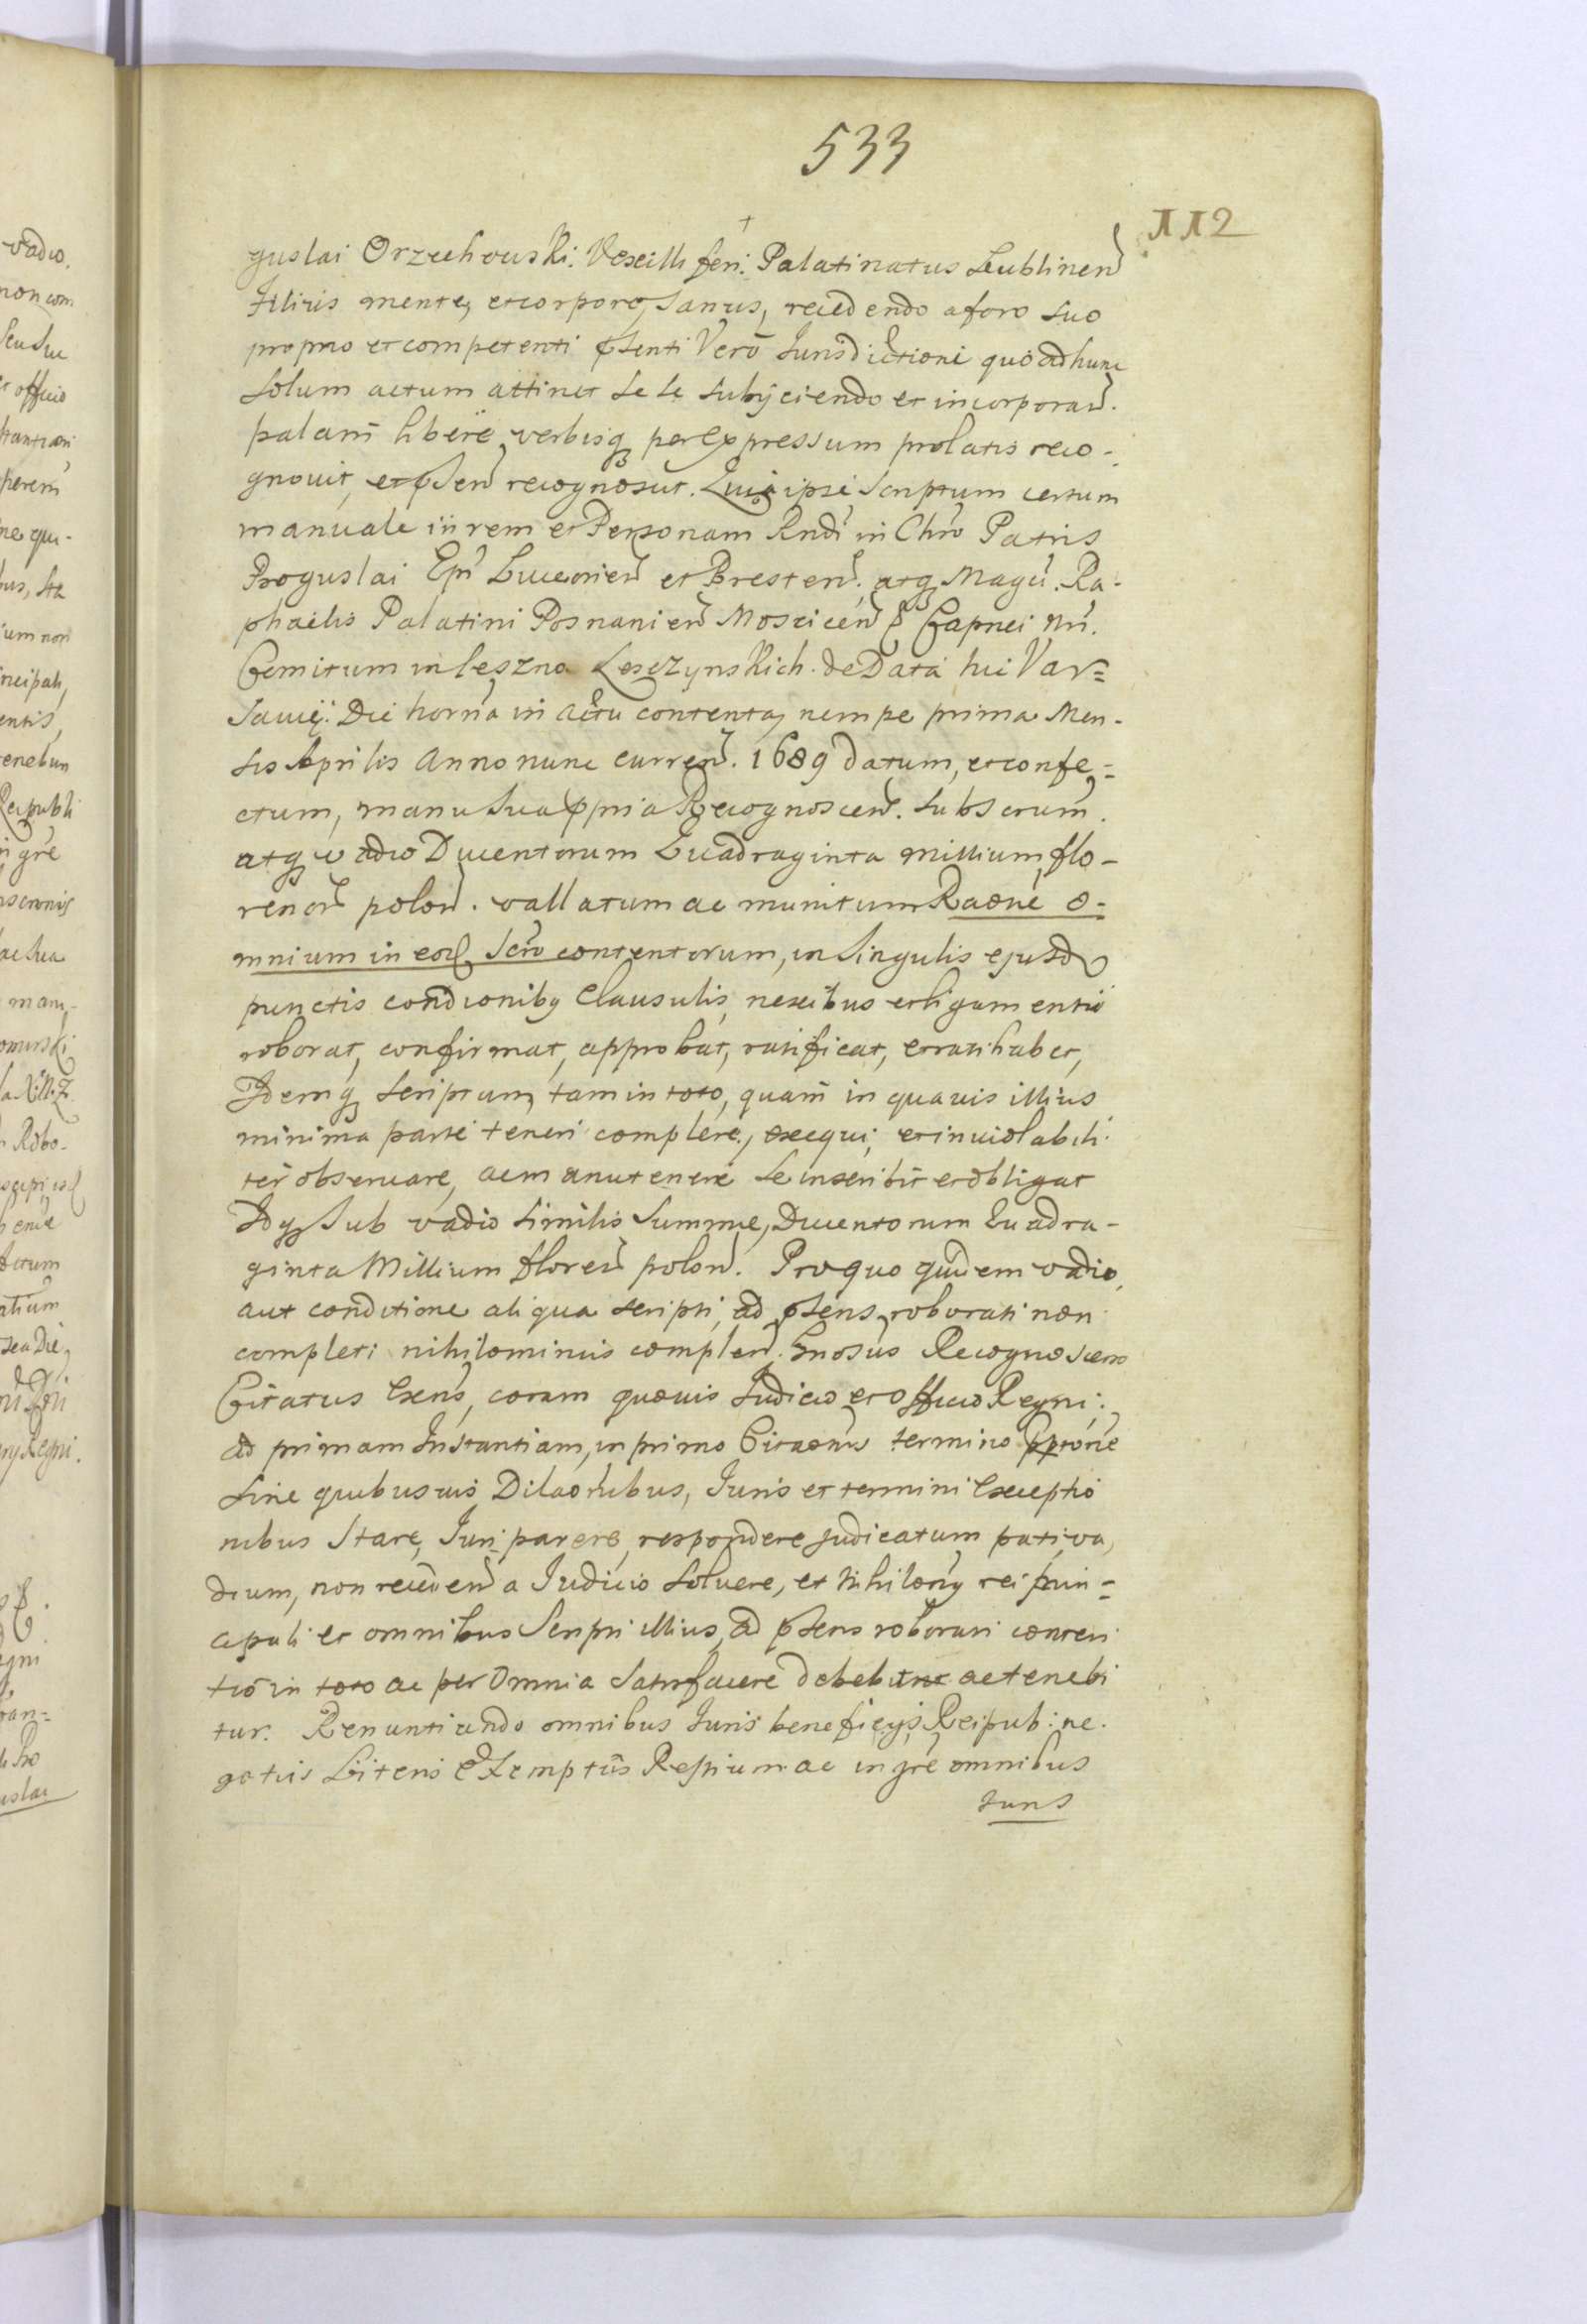 533
112
guslai Orzechouski. Vexilliferi. Palatinatus Lublinen
Filius mente, et corpore, sanus, recedendo a foro suo
proprio et competenti psenti Vero Jurisdictioni quo ad hunc
solum actum attinet se se subijciendo et incorporan.
palam libere verbisq per expressum prolatis reco-
gnouit, et psen recognoscit. Quia ipse Scriptum certum
manuale in rem et Personam Rndi in Chro Patris
Boguslai Epi Luceorien et Bresten. atq Magci. Ra-
phaelis Palatini Posnanien Moscicen Capnei
Comitum in leszno Leszczynskich. de Data hic Var=
sauię. Die horna in actu contenta, nempe prima Men-
sis Aprilis Anno nunc curren. 1689 datum, et confe=
ctum, manu sua ppria Recognoscen. subscrum.
atq vadio Ducentorum Quadraginta millium flo-
renor polon. vallatum ac munitum Raone o-
mnium in eod Scro contentorum, in singulis ejusd
punctis condionibq Clausulis, nexibus et ligamentis
roborat, confirmat, approbat, ratificat, et ratihabet,
Idemq scriptum, tam in toto, quam in quauis illius
minima parte teneri complere, exequi, et inuiolabili-
ter obseruare, ac manutenere se inscribit et obligat
Idq sub vadio similis summe, Ducentorum Quadra-
ginta Millium floren polon. Pro quo quidem vadio,
aut conditione aliqua scripti, ad psens, roborati non
completi nihilominus complen. Gnosus Recognoscens
Citatus exens, coram quouis Judicio et officio Regni.
ad primam Instantiam, in primo Citaonis termino pptorie
sine quibusuis Dilaonibus, Juris et termini Exceptio
nibus Stare, Juri parere, respondere judicatum pati, va
dium, non receden a Judicio soluere, et Nihilomq rei prin=
cipali et omnibus Scripti illius, ad psens roborati conten
tis in toto ac per omnia satisfacere debebit ac tenebi
tur. Renuntiando omnibus Juris beneficys, Reipub: ne-
gotiis Literis Exemptiis Regium ac in gre omnibus
Juris